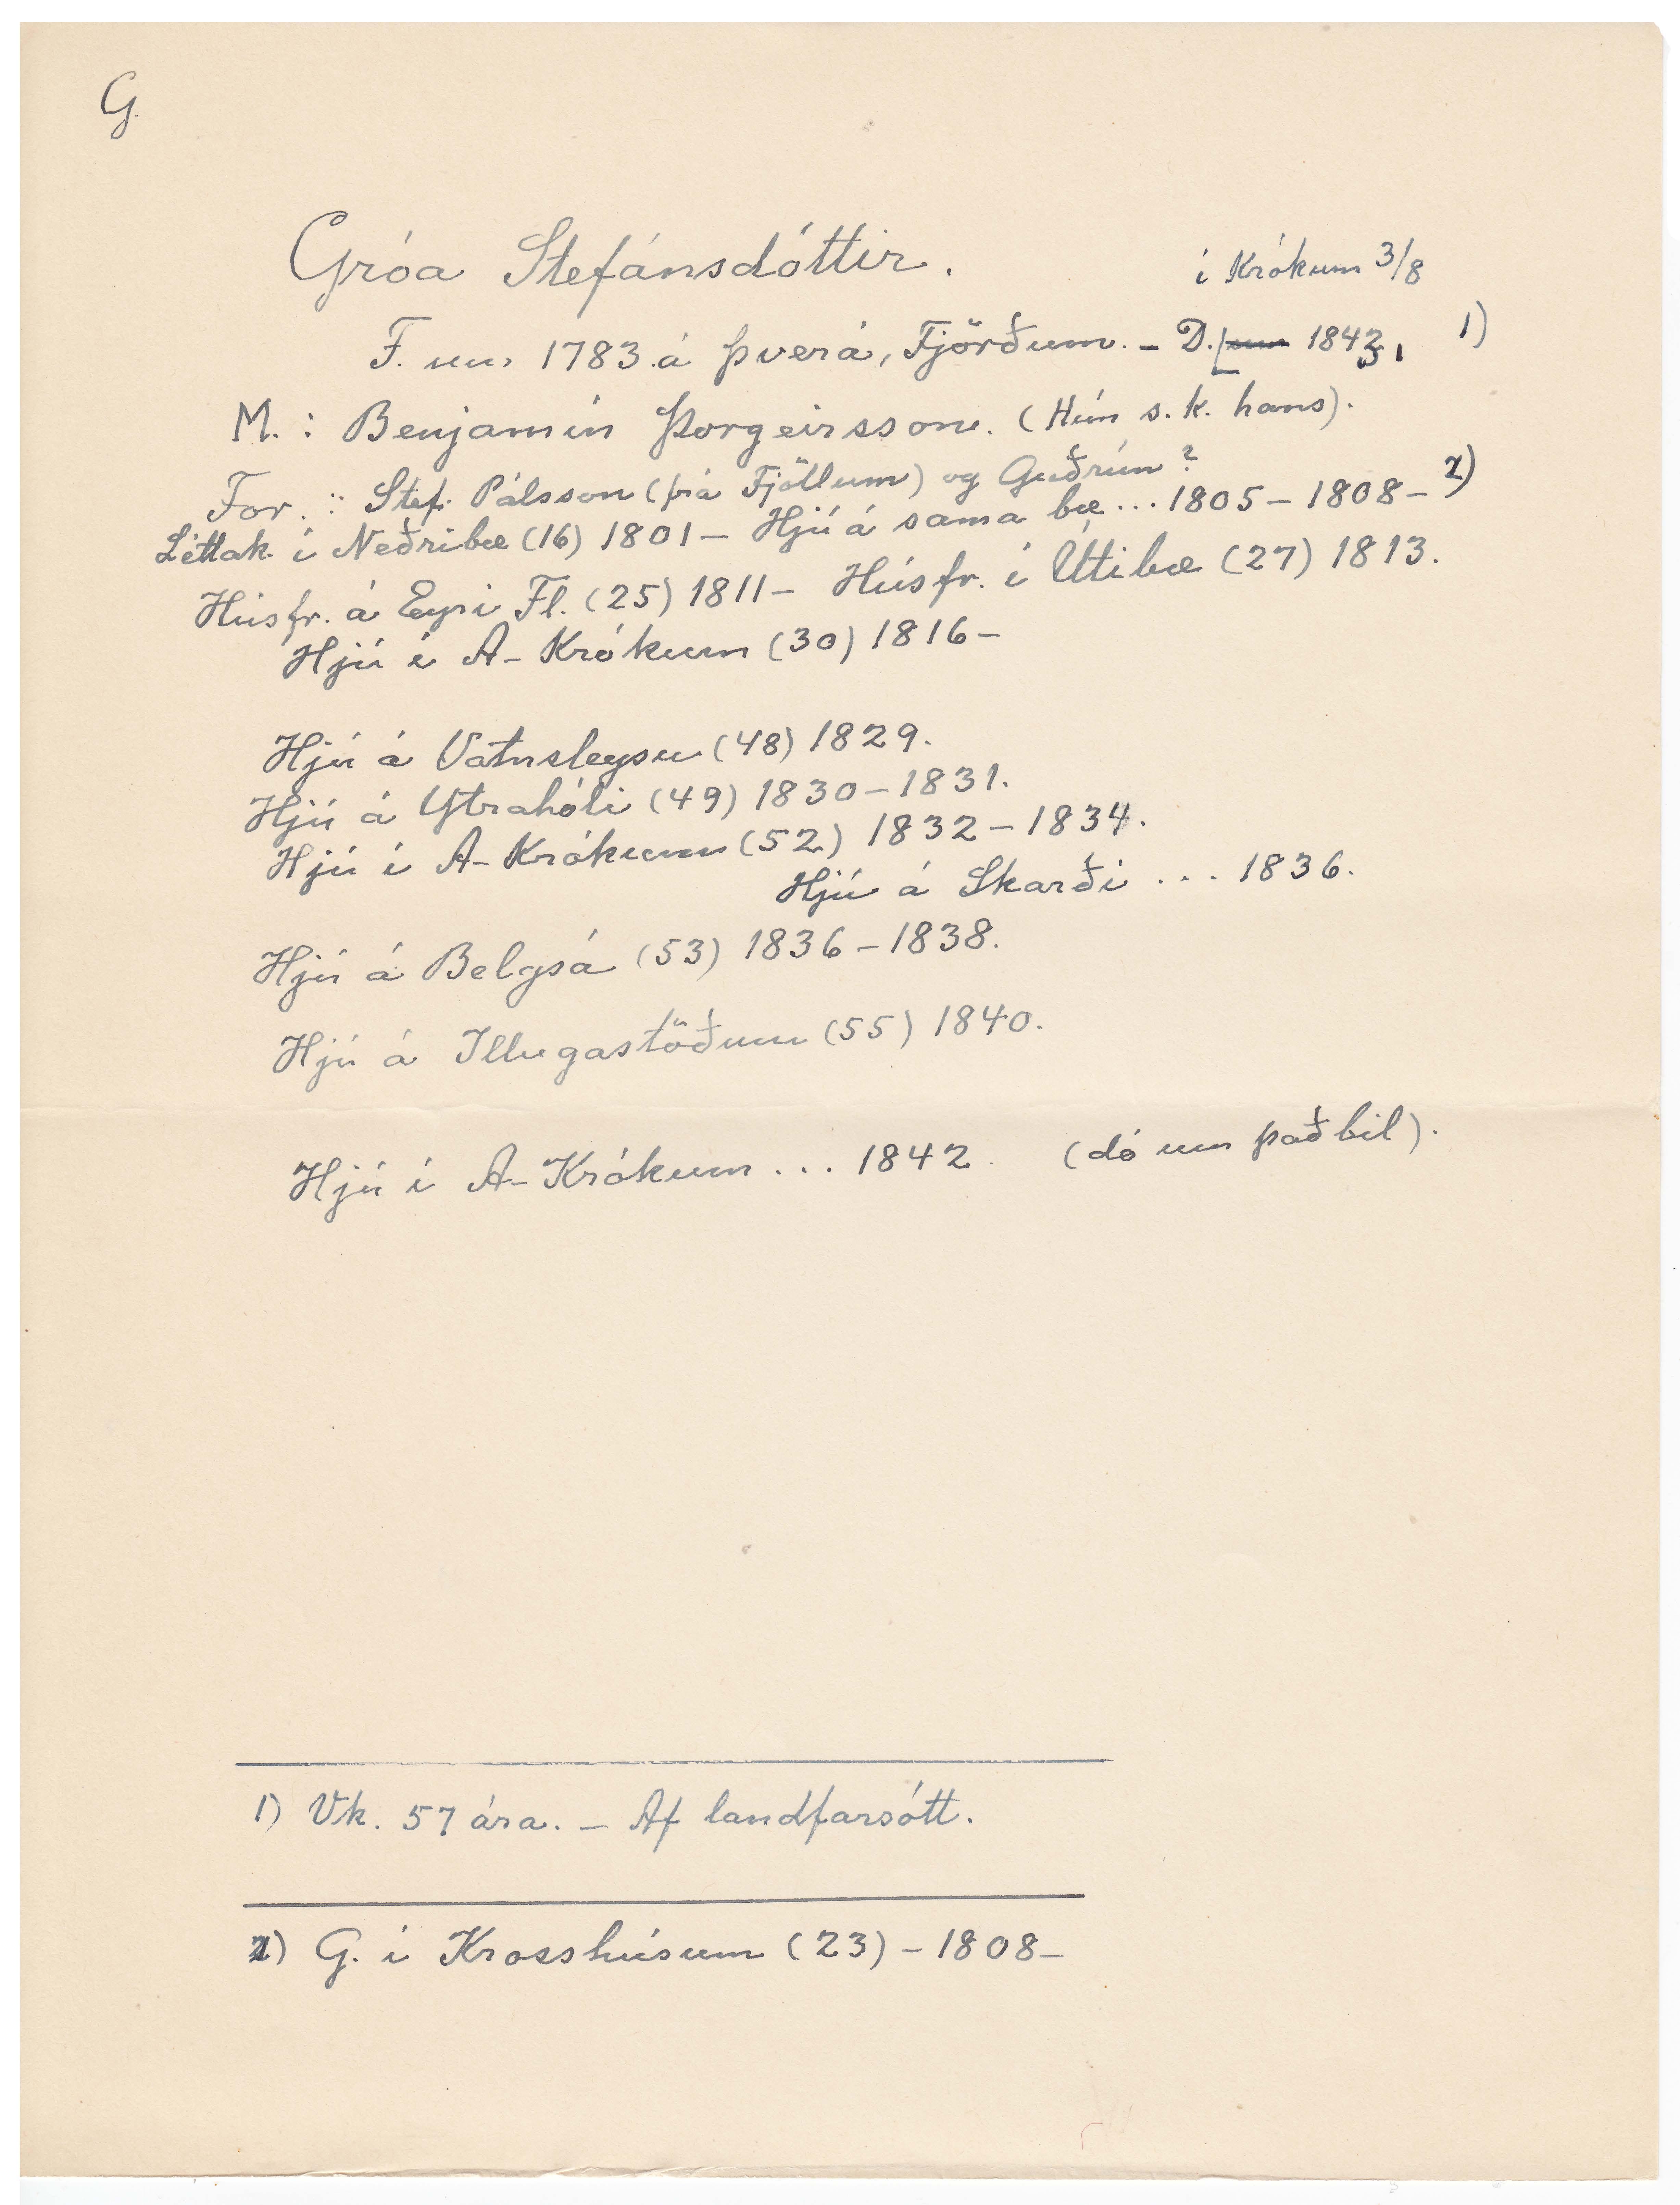 G.
Gróa Stefánsdóttir.
í Krókum 3/8
F. um 1783 á Þverá, Fjörðum. – D. [um 1843. 1)
M. : Benjamín Þorgeirsson. (Hún s.k. hans).
For. : Stef. Pálsson (frá Fjöllum) og Guðrún?
Léttak. í Neðribæ (16) 1801 – Hjú á sama bæ ... 1805 – 1808 – 2)
Húsfr. á Eyri Fl. (25) 1811 – Húsfr. í Útibæ (27) 1813.
Hjú í A-Krókum (30) 1816 –
Hjú á Vatnsleysu (48) 1829.
Hjú á Ytrahóli (49) 1830 – 1831.
Hjú í A-Krókum (52) 1832 – 1834.
Hjú á Skarði ... 1836.
Hjú á Belgsá (53) 1836 – 1838.
Hjú á Illugastöðum (55) 1840.
Hjú í A-Krókum ... 1842. (dó um það bil).
1) Vk. 57 ára. – Af landfarsótt.
2) G. í Krosshúsum (23) – 1808 –